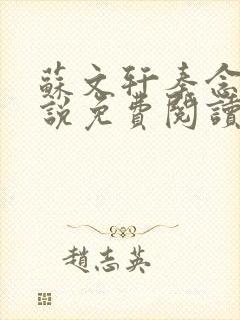 蘇文軒秦念
說免費閱讀
趙志英